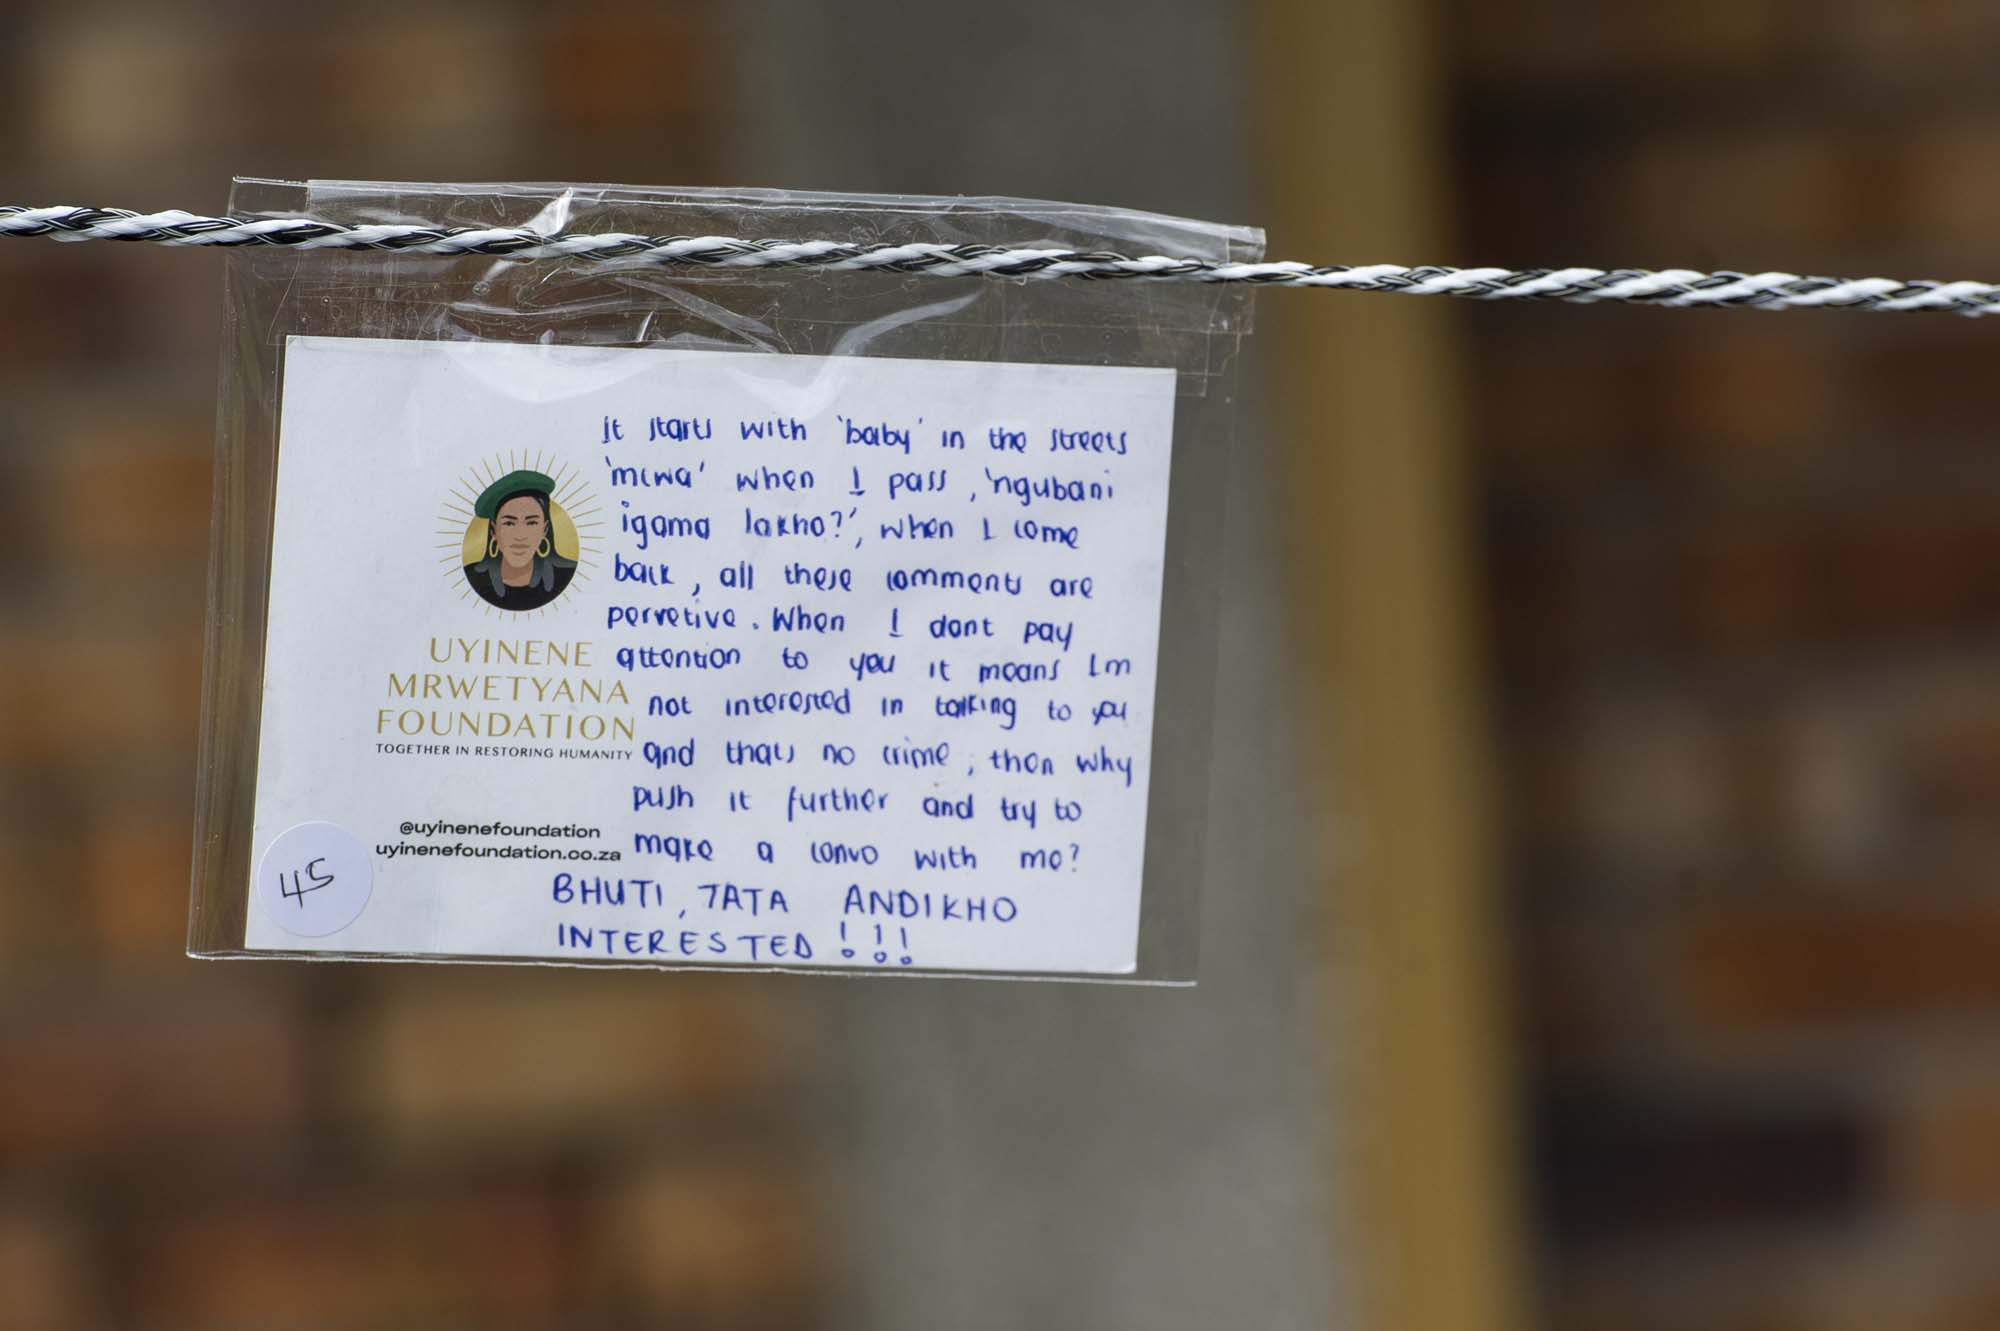 It starts with 'baby' in the streets
'mcwa' when I pass, 'ngubani
igama lakho?', when I come
back, all these comments are
pervetive. When I dont pay
attention to you it means Im
not interested in talking to you
and thats no crime, then why
push it further and try to
make a convo with me?
BHUTI, TATA ANDIKHO
INTERESTED!!!
UYINENE
MRWETYANA
FOUNDATION
TOGETHER IN RESTORING HUMANITY
@uyinenefoundation
uyinenefoundation.co.za
45